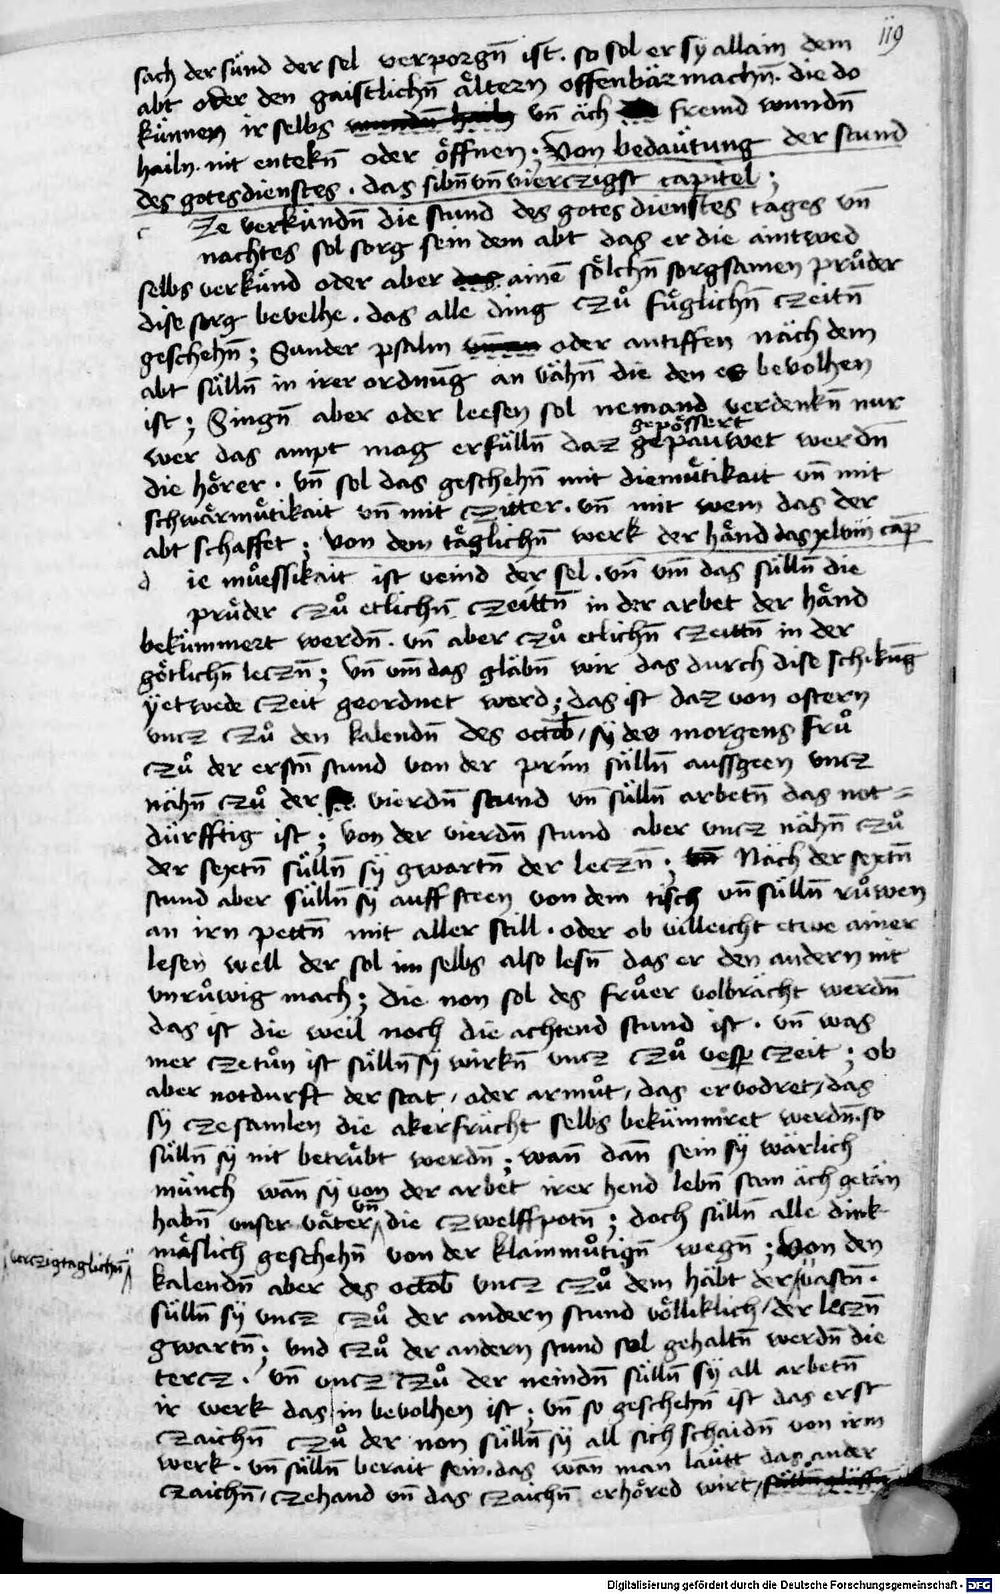 119
sach der sünd der sel verporgn̄ ist. so sol er sÿ allain dem
abt oder den gaistlichn̄ ältern offenbär machn̄. die do
künnen ir selbs wundn̄ hailn vn̄ äch fremd wundn̄
hailn. nit entekn̄ oder öffnen. Von bedaütung der stund
des gotesdienstes. das sibn̄ vn̄ vierczigst capitel;
c Ze verkündn̄ die stund des gotes dienstes tages vn̄
nachtes sol sorg sein dem abt das er die aintwed
selbs verkünd oder aber das ainē sölchn̄ sorgsamen průder
dise sorg bevelhe. das alle ding czů füglichn̄ czeitn̄
geschehn̄; Sunder psalm oder antiffen näch dem
abt sülln̄ in irer ordnūg an vähn̄ die den es bevolhen
ist; Singn̄ aber oder leesen sol nemand verdenkn̄ nur
gepössert
wer das ampt mag erfülln̄ daz gepauwet werdn̄
die hörer. vn̄ sol das geschehn̄ mit diemütikait vn̄ mit
schwärmütikait vn̄ mit czitter. vn̄ mit wem das der
abt schaffet; Von dem täglichn̄ werk der händ das xlviij cap̄
d ie můessikait ist veind der sel. vn̄ vm̄ das sülln̄ die
prüder czů etlichn̄ czeittn̄ in der arbet der händ
bekümmert werdn̄. vn̄ aber czů etlichn̄ czeittn̄ in der
götlichn̄ leczn̄; vn̄ vm̄ das gläbn̄ wir das durch dise schikūg
yetwede czeit geordnet werd; das ist daz von ostern
vncz czů den kalendn̄ des octob̄, sÿ des morgens frů
czů der erstn̄ stund von der prim sülln̄ aussgeen vncz
nähn̄ czů der vierdn̄ stund vn̄ sülln̄ arbetn̄ das not=
dürfftig ist; Von der vierdn̄ stund aber vncz nähn̄ czů
der sextn̄ sülln̄ sÿ gwartn̄ der leczn̄; vn̄ Näch der sextn̄
stund aber sülln̄ sÿ auff steen von dem tisch vn̄ sülln̄ růwen
an irn pettn̄ mit aller still. oder ob villeicht etwe ainer
lesen well der sol im selbs also lesn̄ das er den andern nit
vnrůwig mach; die non sol des frůer volbrächt werdn̄
das ist die weil noch die achtend stund ist. vn̄ was
mer czetůn ist sülln̄ sÿ wirkn̄ vncz czů vesp̄ czeit; ob
aber notdurft der stat, oder armůt, das ervodret, das
sÿ czesamlen die akerfrücht selbs bekümmret werdn̄. so
sülln̄ sÿ nit betrübt werdn̄; wan̄ dan̄ sein sÿ wärlich
münch wan̄ sÿ von der arbet irer hend lebn̄ sam äch getän
habn̄ unser väter vn̄ die czwelffpotn̄; doch sülln̄ alle dink
mäslich geschehn̄ von der klainmůtign̄ wegn̄; Von den
vierczigtaglichn̄
kalendn̄ aber des octob̄ vncz czů dem häbt der vastn̄.
sülln̄ sÿ vncz czů der andern stund völliklich, der leczn̄
gwartn̄; vnd czů der andern stund sol gehaltn̄ werdn̄ die
tercz. vn̄ vncz czů der neindn̄ sülln̄ sÿ all arbetn̄
ir werk das in bevolhen ist; vn̄ so geschehn̄ ist das erst
czaichn̄ czů der non sülln̄ sÿ all sich schaidn̄ von irm
werk. vn̄ sülln̄ berait sein. das wan̄ man laütt das ander
czaichn̄, czehand vn̄ das czaichn̄ erhöred wirt,
Digitalisierung gefördert durch die Deutsche Forschungsgemeinschaft - DFG